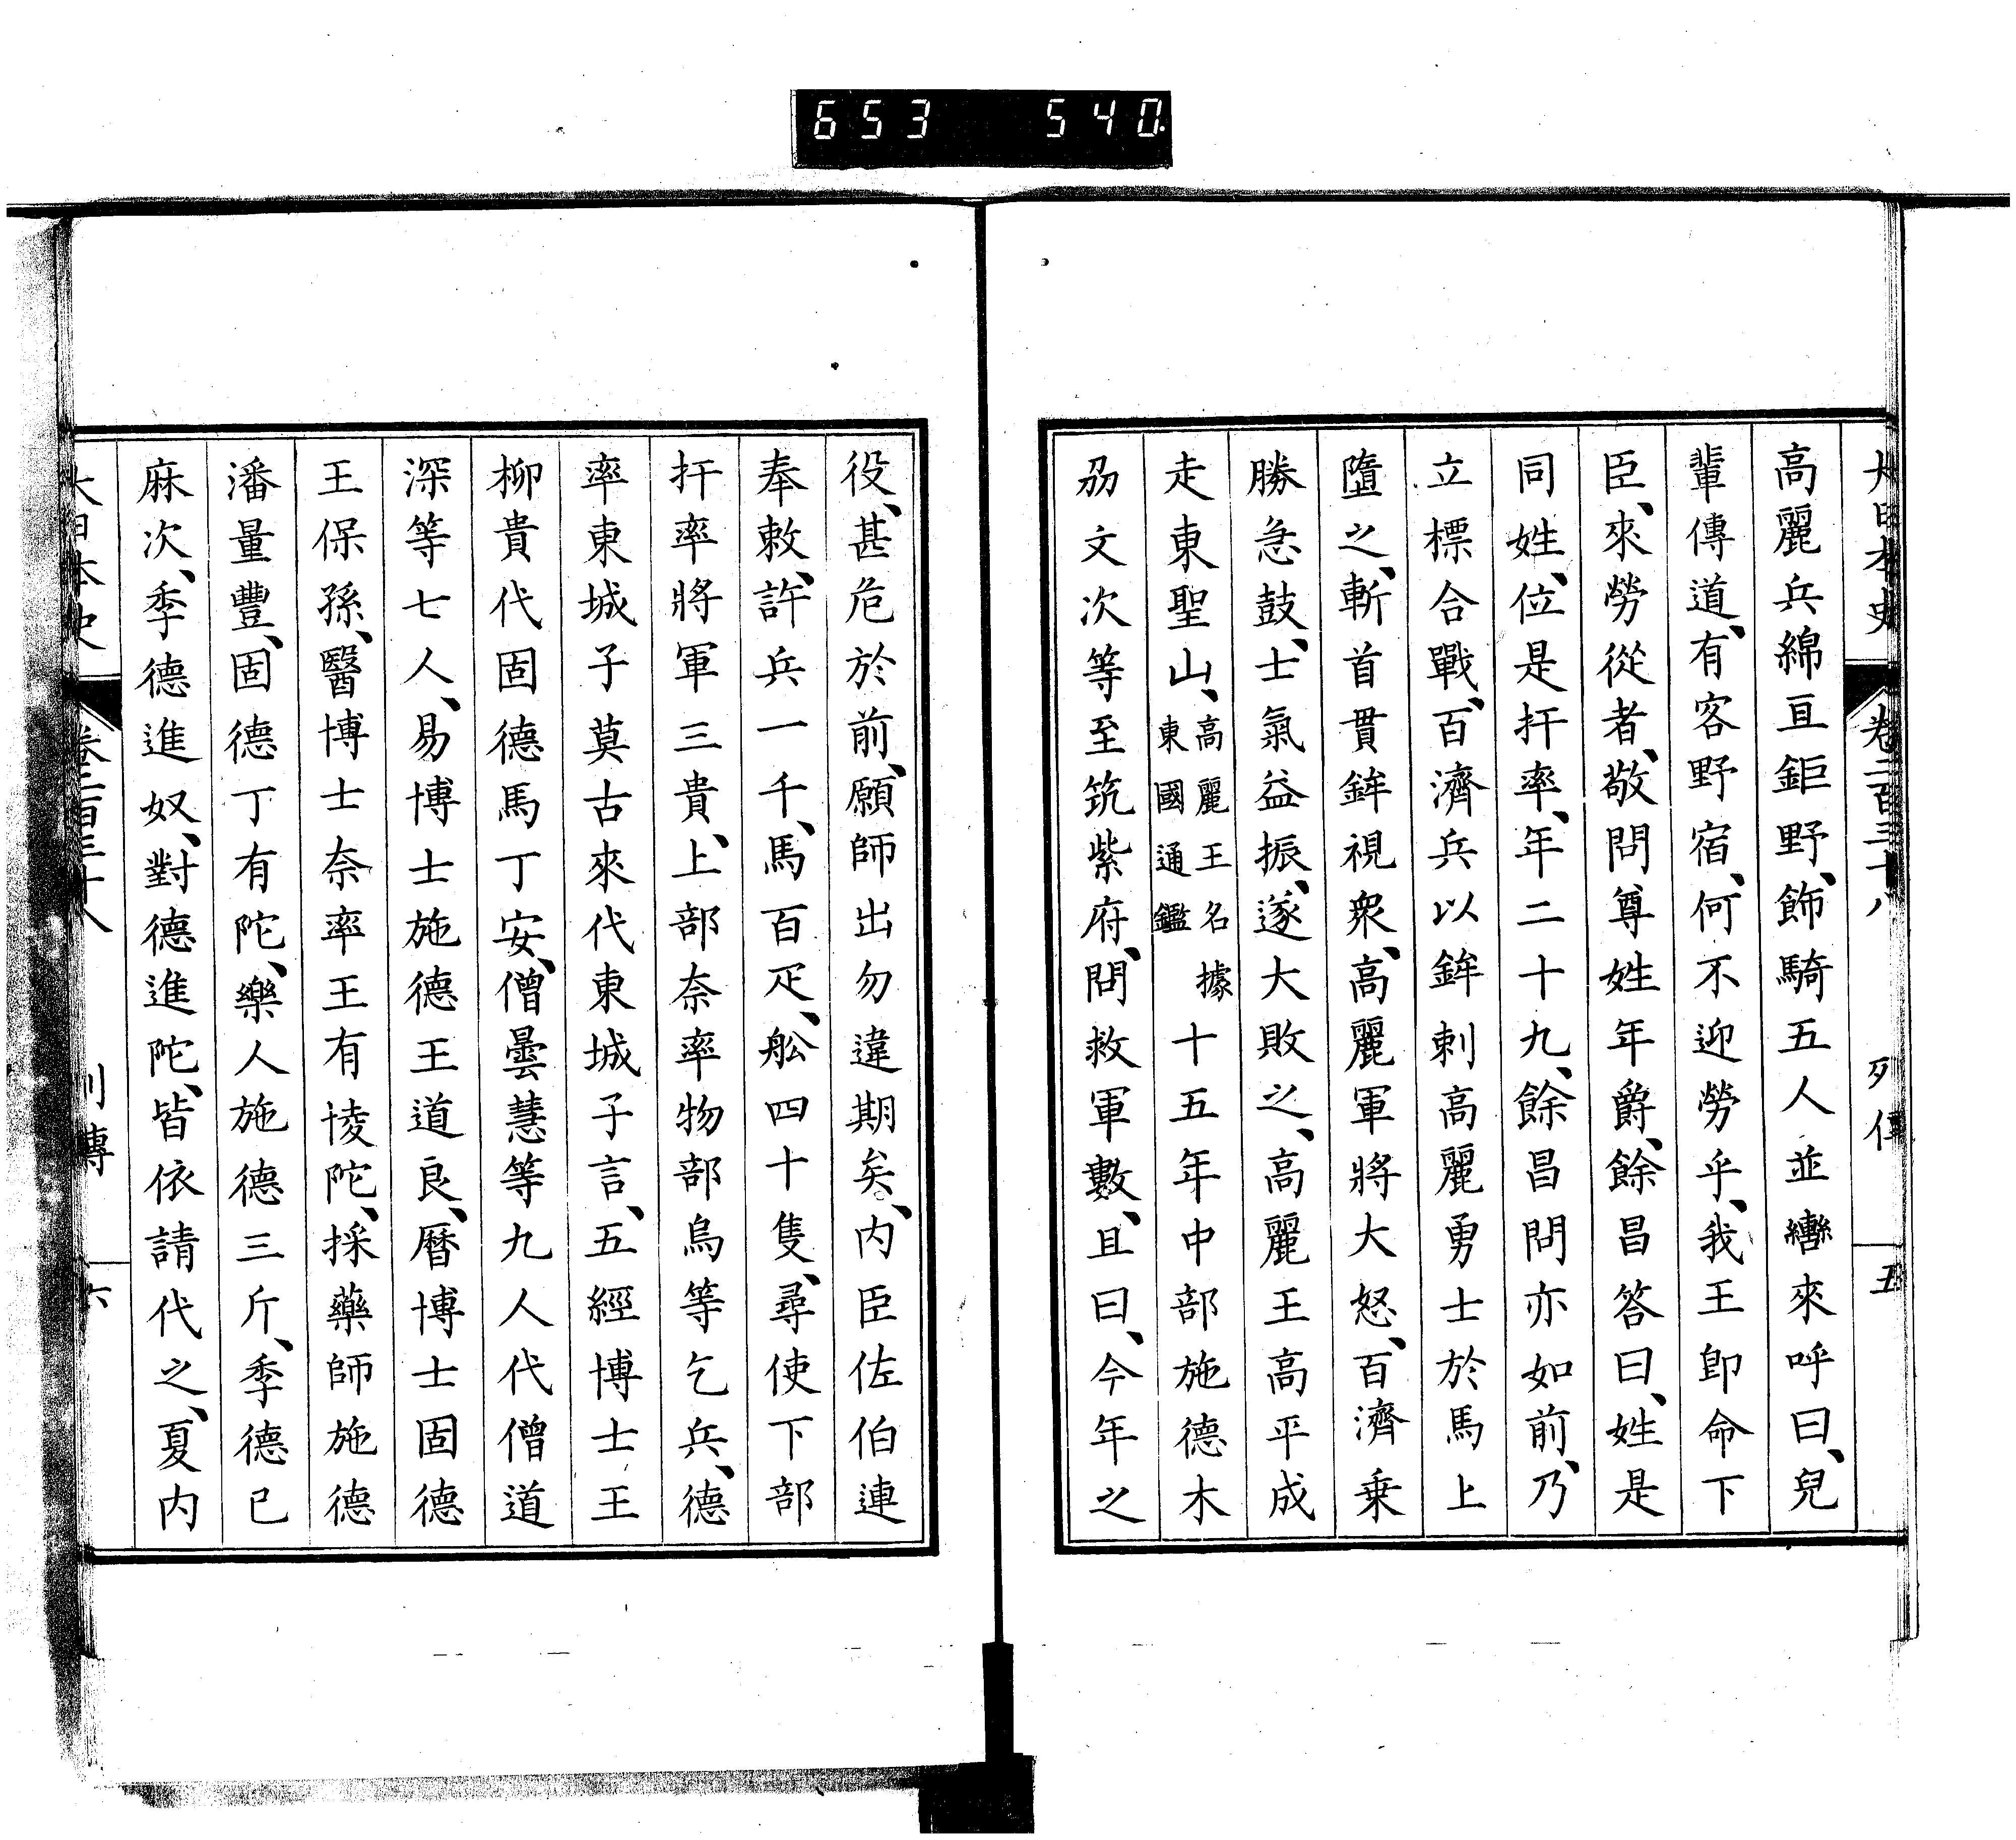 653 540
大日本史 卷二百三十八 列傳 五
高麗兵綿亘鉅野、飾騎五人並轡來呼曰、兒
輩傳道、有客野宿、何不迎勞乎、我王卽命下
臣、來勞從者、敬問尊姓年爵、餘昌答曰、姓是
同姓、位是扞率、年二十九、餘昌問亦如前、乃
立標合戰、百濟兵以鉾刺高麗勇士於馬上
墮之、斬首貫鉾視衆、高麗軍將大怒、百濟乗
勝急鼓、士氣益振、遂大敗之、高麗王高平成
走東聖山、高麗王名據東國通鑑十五年中部施德木
刕文次等至筑紫府、問救軍數、且曰、今年之
役、甚危於前、願師出勿違期矣、内臣佐伯連
奉敕、許兵一千、馬百疋、舩四十隻、尋使下部
扞率將軍三貴、上部奈率物部烏等乞兵、德
率東城子莫古來代東城子言、五經博士王
柳貴代固德馬丁安、僧曇慧等九人代僧道
深等七人、易博士施德王道良、曆博士固德
王保孫、醫博士奈率王有㥄陀、採藥師施德
潘量豐、固德丁有陀、樂人施德三斤、季德己
麻次、季德進奴、對德進陀、皆依請代之、夏内
大日本史 卷二百三十八 列傳 六